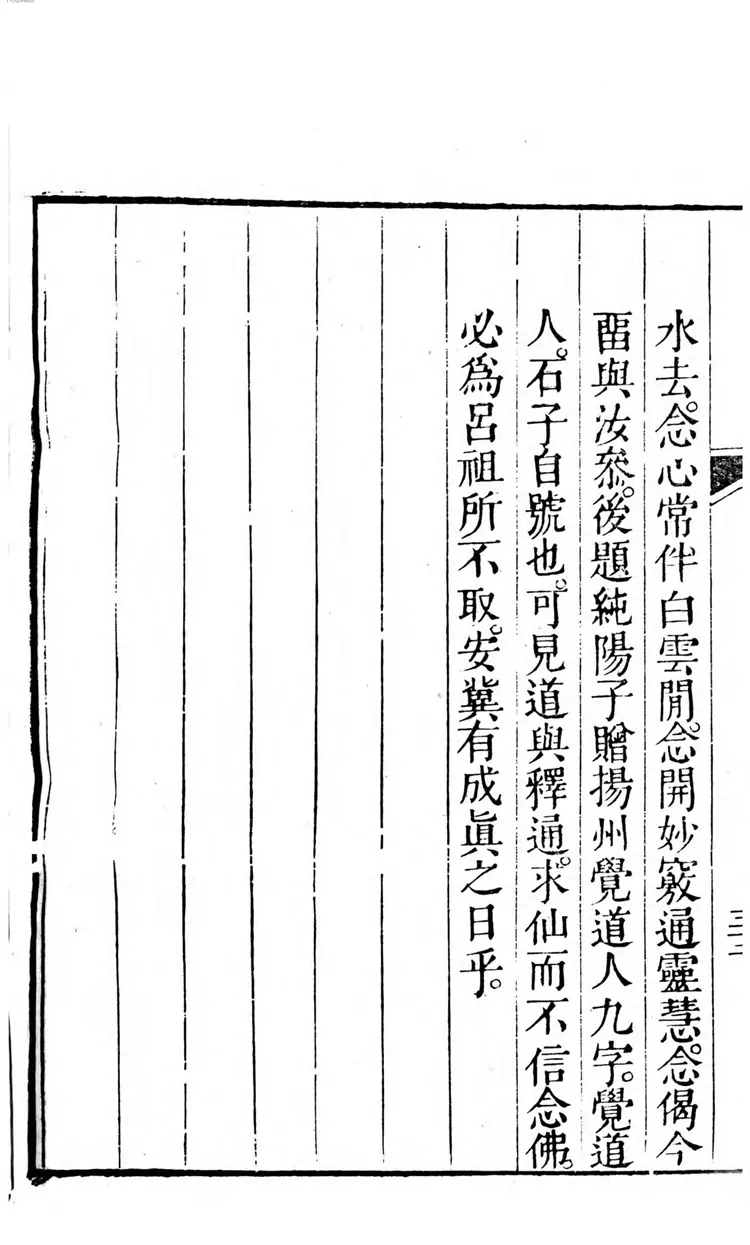 水去。念心常伴白雲閒。念開妙竅通靈慧。念偈今
畱與汝叅。後題純陽子贈揚州覺道人九字。覺道
人。石子自號也。可見道與釋通。求仙而不信念佛。
必爲呂祖所不取。安冀有成眞之日乎。